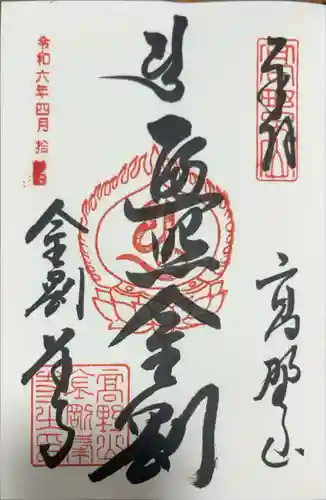 奉拝
高野山
遍照金剛
金剛峯寺
令和六年四月拾
高野山
金剛峯
寺之印